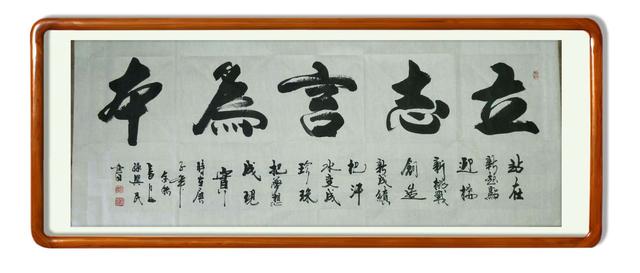 立志言為本
站在
新起點
迎接
新挑戰
創造
新成績
把汗
水變成
珍珠
把夢想
成現
實
時在庚
子年
孫興民